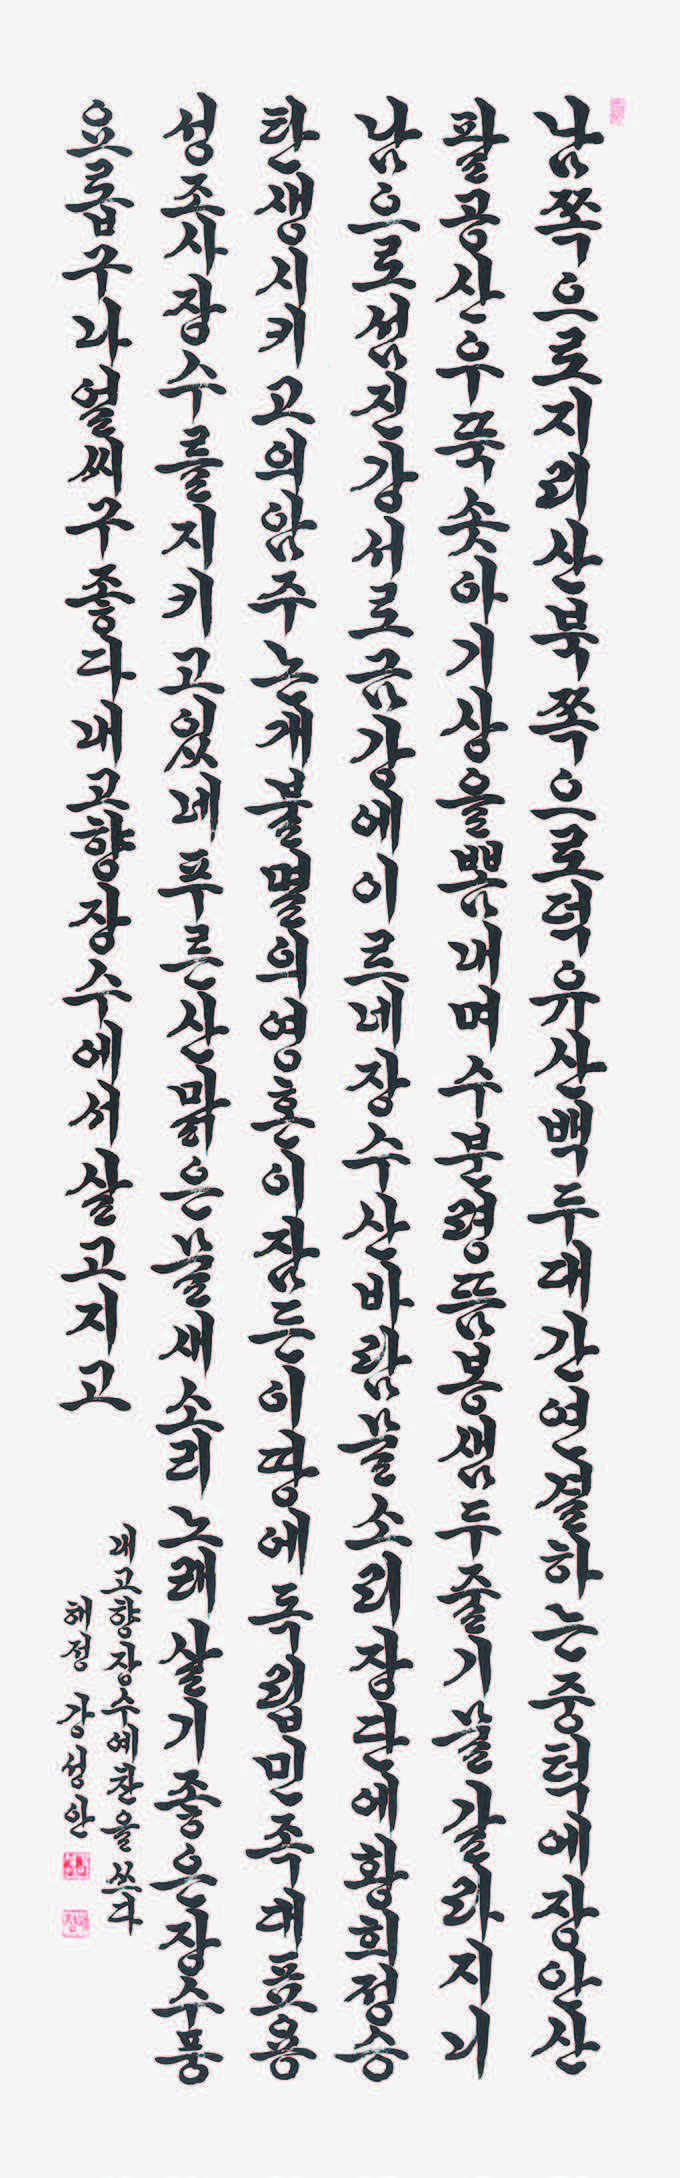 남쪽으로지리산북쪽으로덕유산백두대간연결하는중턱에장안산
팔공산우뚝솟아기상을뽐내며수분령뜸봉샘두줄기물갈라지니
남으로섬진강서로금강에이르네장수산바람물소리장단에황희정승
탄생시키고의암주논개불멸의영혼이잠든이땅에독립민족대표용
성조사장수를지키고있네푸른산맑은물새소리노래살기좋은장수풍
요롭구나얼씨구좋다내고향장수에서살고지고
내고향장수예찬을쓰다
해정 강성안